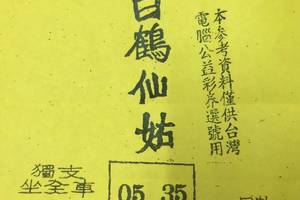 本參考資料僅供台灣
電腦公益彩券選號用
白鶴仙姑
獨支
坐全車
05 35